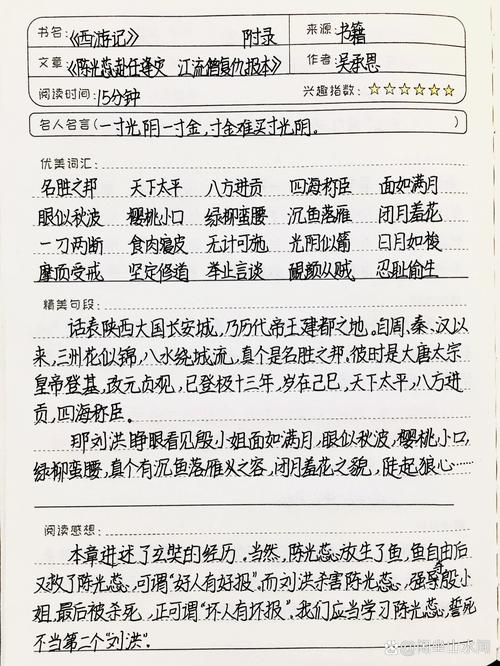 书名:《西游记》 附录
来源:书籍
文章:《陈光蕊赴任逢灾 江流僧复仇报本》
作者:吴承恩
阅读时间:15分钟
兴趣指数:☆☆☆☆☆☆
名人名言(一寸光阴一寸金,寸金难买寸光阴。)
优美词汇:
名胜之邦 天下太平 八方进贡 四海称臣 面如满月
眼似秋波 樱桃小口 绿柳蛮腰 沉鱼落雁 闭月羞花
一刀两断 食肉寝皮 无计可施 光阴似箭 日月如梭
摩顶受戒 坚定修道 举止言谈 靦颜从贼 忍耻偷生
精美句段:
话表陕西大国长安城,乃历代帝王建都之地。自周、秦、汉以
来,三州花似锦,八水绕城流,真个是名胜之邦。彼时是大唐太宗
皇帝登基,改元贞观,已登极十三年,岁在己巳,天下太平,八方进
贡,四海称臣。
那刘洪睁眼看见殷小姐面如满月,眼似秋波,樱桃小口,
绿柳蛮腰,真个有沉鱼落雁之容,闭月羞花之貌,陡起狼心……
阅读感想:
本章讲述了玄奘的经历。当然,陈光蕊放生了鱼,鱼自由后
又救了陈光蕊,可谓“好人有好报”。而刘洪杀害陈光蕊,强辱殷小
姐,最后被杀死,正可谓“坏人有坏报”。我们应当学习陈光蕊,誓死
不当第二个“刘洪”。
@闲坐山水间